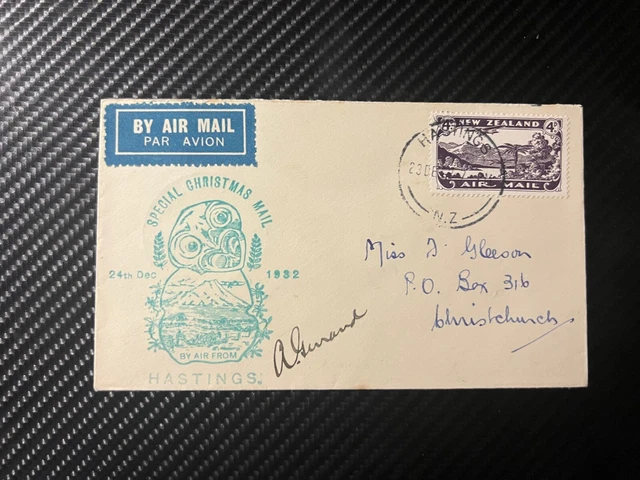 BY AIR MAIL
PAR AVION
NEW ZEALAND 4D
AIR MAIL
HASTINGS
23 DE
N.Z
SPECIAL CHRISTMAS MAIL
24th Dec 1932
BY AIR FROM
HASTINGS.
Miss I Gleeson
P.O. Box 316
Christchurch